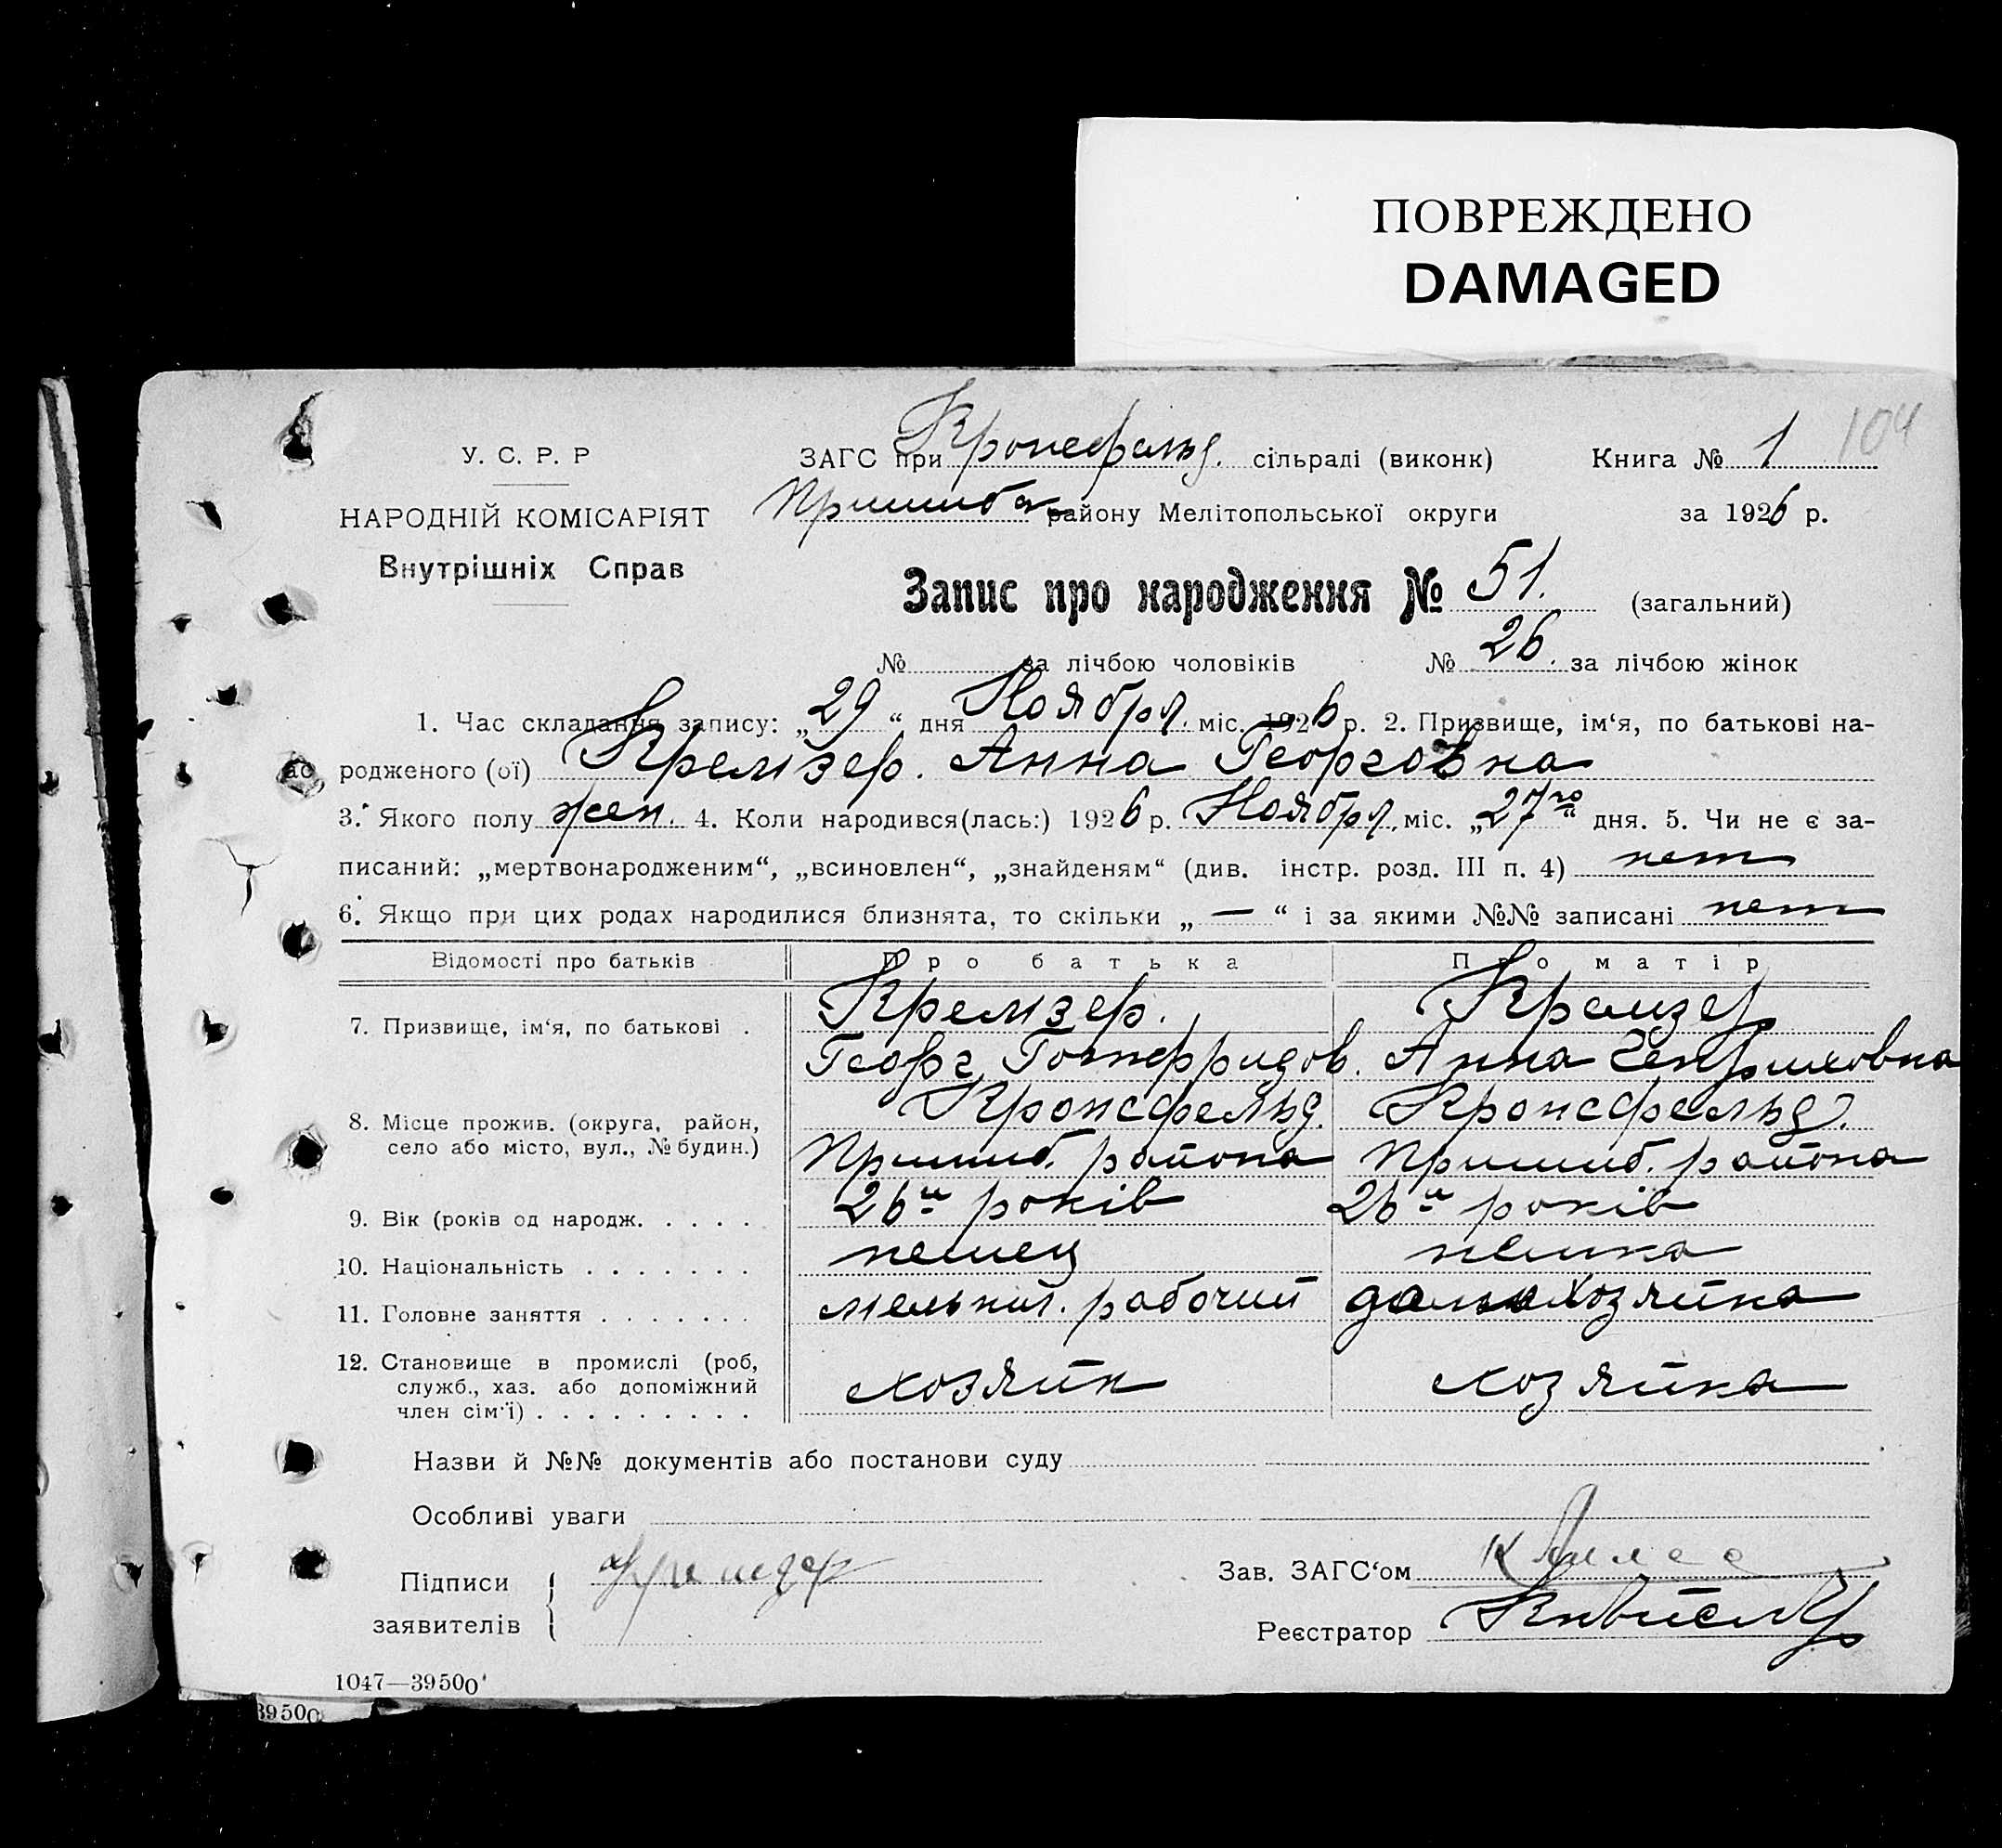 ПОВРЕЖДЕНО
DAMAGED
104
У. С. Р. Р
ЗАГС при Кронсфельд. сільралі (виконк) Книга № 1
НАРОДНІЙ КОМІСАРІЯТ
Пришибск району Мелітопольської округи за 1926 р.
Внутрішніх Справ
Запис про народження № 51. (загальний)
№ за лічбою чоловіків № 26. за лічбою жінок
1. Час складання запису: „29“ дня Ноября. міс. 1926 р. 2. Призвище, ім‘я, по батькові на-
родженого (ої) Кремзер. Анна Георговна
3. Якого полу жен. 4. Коли народився(лась:) 1926 р. Ноября. міс. „27го“ дня. 5. Чи не є за-
писаний: „мертвонародженим“, „всиновлен“, „знайденям“ (див. інстр. розд. III п. 4) нет
6. Якщо при цих родах народилися близнята, то скільки „ — “ і за якими №№ записані нет
Відомості про батьків Про батька Про матір
7. Призвище, ім‘я, по батькові . Кремзер. Кремзер
Георг Готфридов. Анна Генриховна
8. Місце прожив. (округа, район, Кронсфельд. Кронсфельд.
село або місто, вул., № будин.) Пришиб. района Пришиб. района
9. Вік (років од народж. . . . . 26и років 26и років
10. Національність . . . . . . . немец немка
11. Головне заняття . . . . . . . мельнич. рабочий домохозяйка
12. Становище в промислі (роб,
служб., хаз. або допоміжний хозяин хозяйка
член сім‘ї) . . . . . . . . .
Назви й №№ документів або постанови суду
Особливі уваги
Підписи Кремзер Зав. ЗАГС‘ом
заявителів Реєстратор
1047—39500
39500